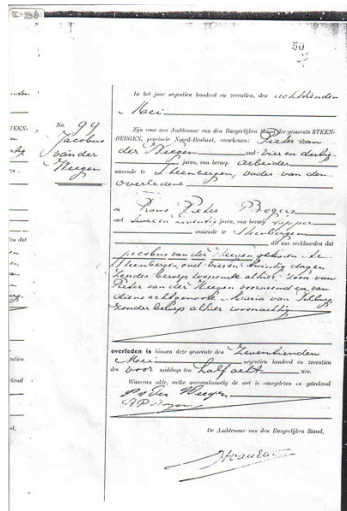 50
In het jaar negentien honderd en zeventien, den achttienden
Mei
No. 99
Jacobus
van der
Heegen
Zijn voor ons Ambtenaar van den Burgerlijken Stand der gemeente STEEN-
BERGEN, provincie Noord-Brabant, verschenen: Pieter van
der Heegen oud vier en dertig
jaren, van beroep arbeider
wonende te Steenbergen, vader van den
overledene
en Frans Pieter Bogers
oud twee en twintig jaren, van beroep
wonende te Steenbergen
die ons verklaarden dat
Jacobus van der Heegen geboren te
Steenbergen, oud vier en twintig dagen
zonder beroep gewoond alhier, zoon van
Pieter van der Heegen voornoemd en van
diens echtgenoote Maria van Tilburg
zonder beroep alhier woonachtig
overleden is binnen deze gemeente den Zeventienden
Mei negentien honderd en zeventien
des voor middags ten half acht ure.
Waarvan akte, welke overeenkomstig de wet is voorgelezen en geteekend
De Ambtenaar van den Burgerlijken Stand,